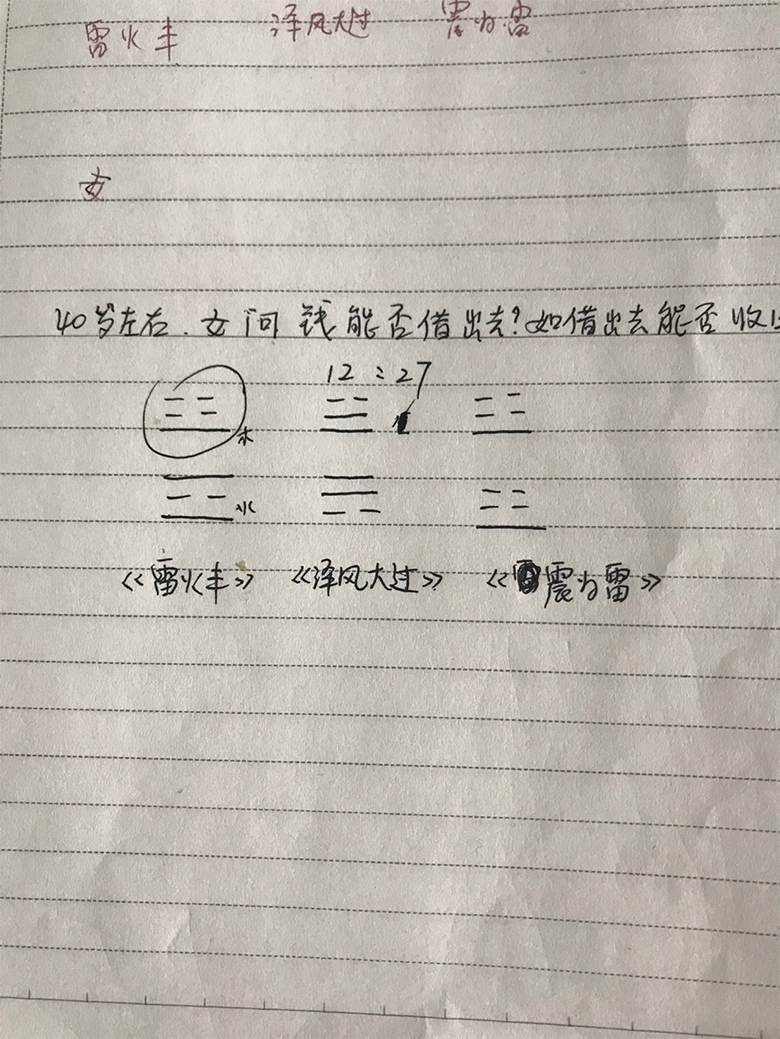 雷火丰 泽风大过 震为雷
女
40岁左右.女问钱能否借出去?如借出去能否收
12:27
木
火
《雷火丰》 《泽风大过》 《震为雷》